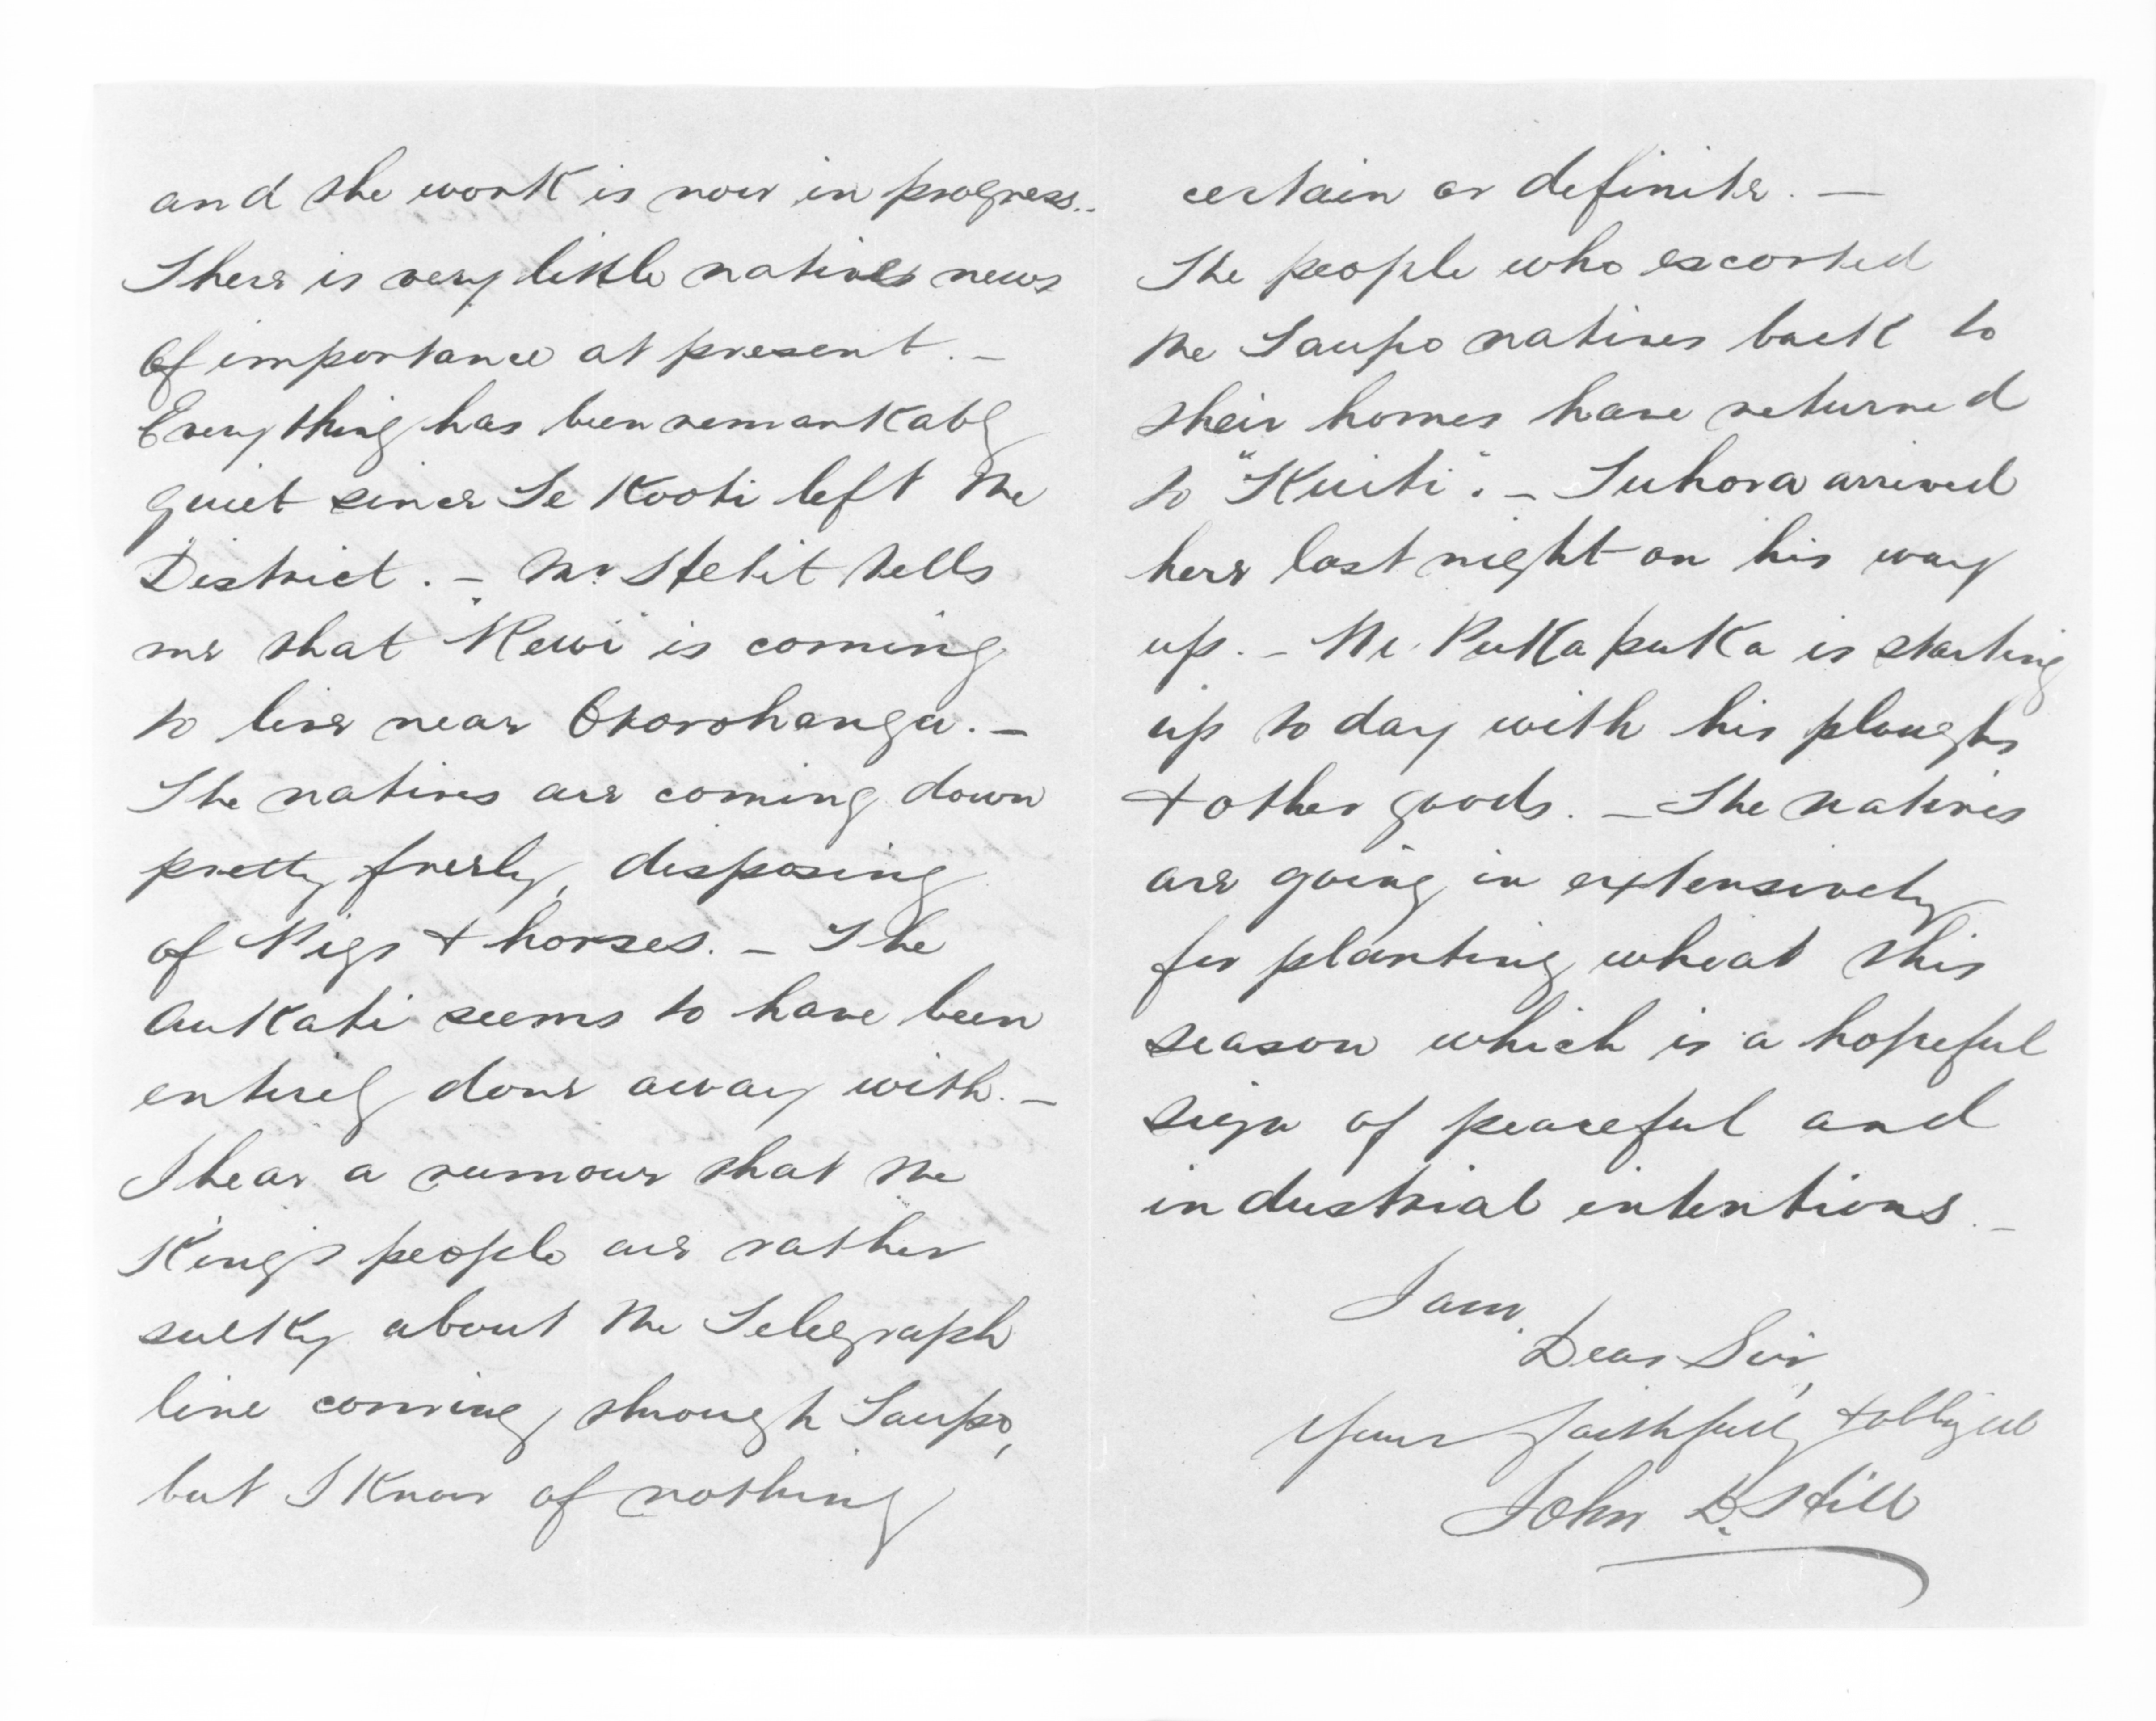 and the work is now in progress.-
There is very little native news
of importance at present. -
Everything has been remarkably
quiet since Te Kooti left the
District. - Mr. Hetit tells
me that "Rewi" is coming
to live near Otorohanga. -
The natives are coming down
pretty freely, disposing
of Pigs & horses. - The
aukati seems to have been
entirely done away with. -
I hear a rumour that the
King's people are rather
sulky about the Telegraph
line coming through Taupo,
but I know of nothing
certain or definite. -
The people who escorted
the Taupo natives back to
their homes have returned
to "Kuiti". - Tuhora arrived
here last night on his way
up. - Te Pukapuka is starting
up to day with his ploughs
& other goods. - The natives
are going in extensively
for planting wheat this
season which is a hopeful
sign of peaceful and
industrial intentions. -
I am,
Dear Sir,
Yours faithfully & obliged
John D. Hill